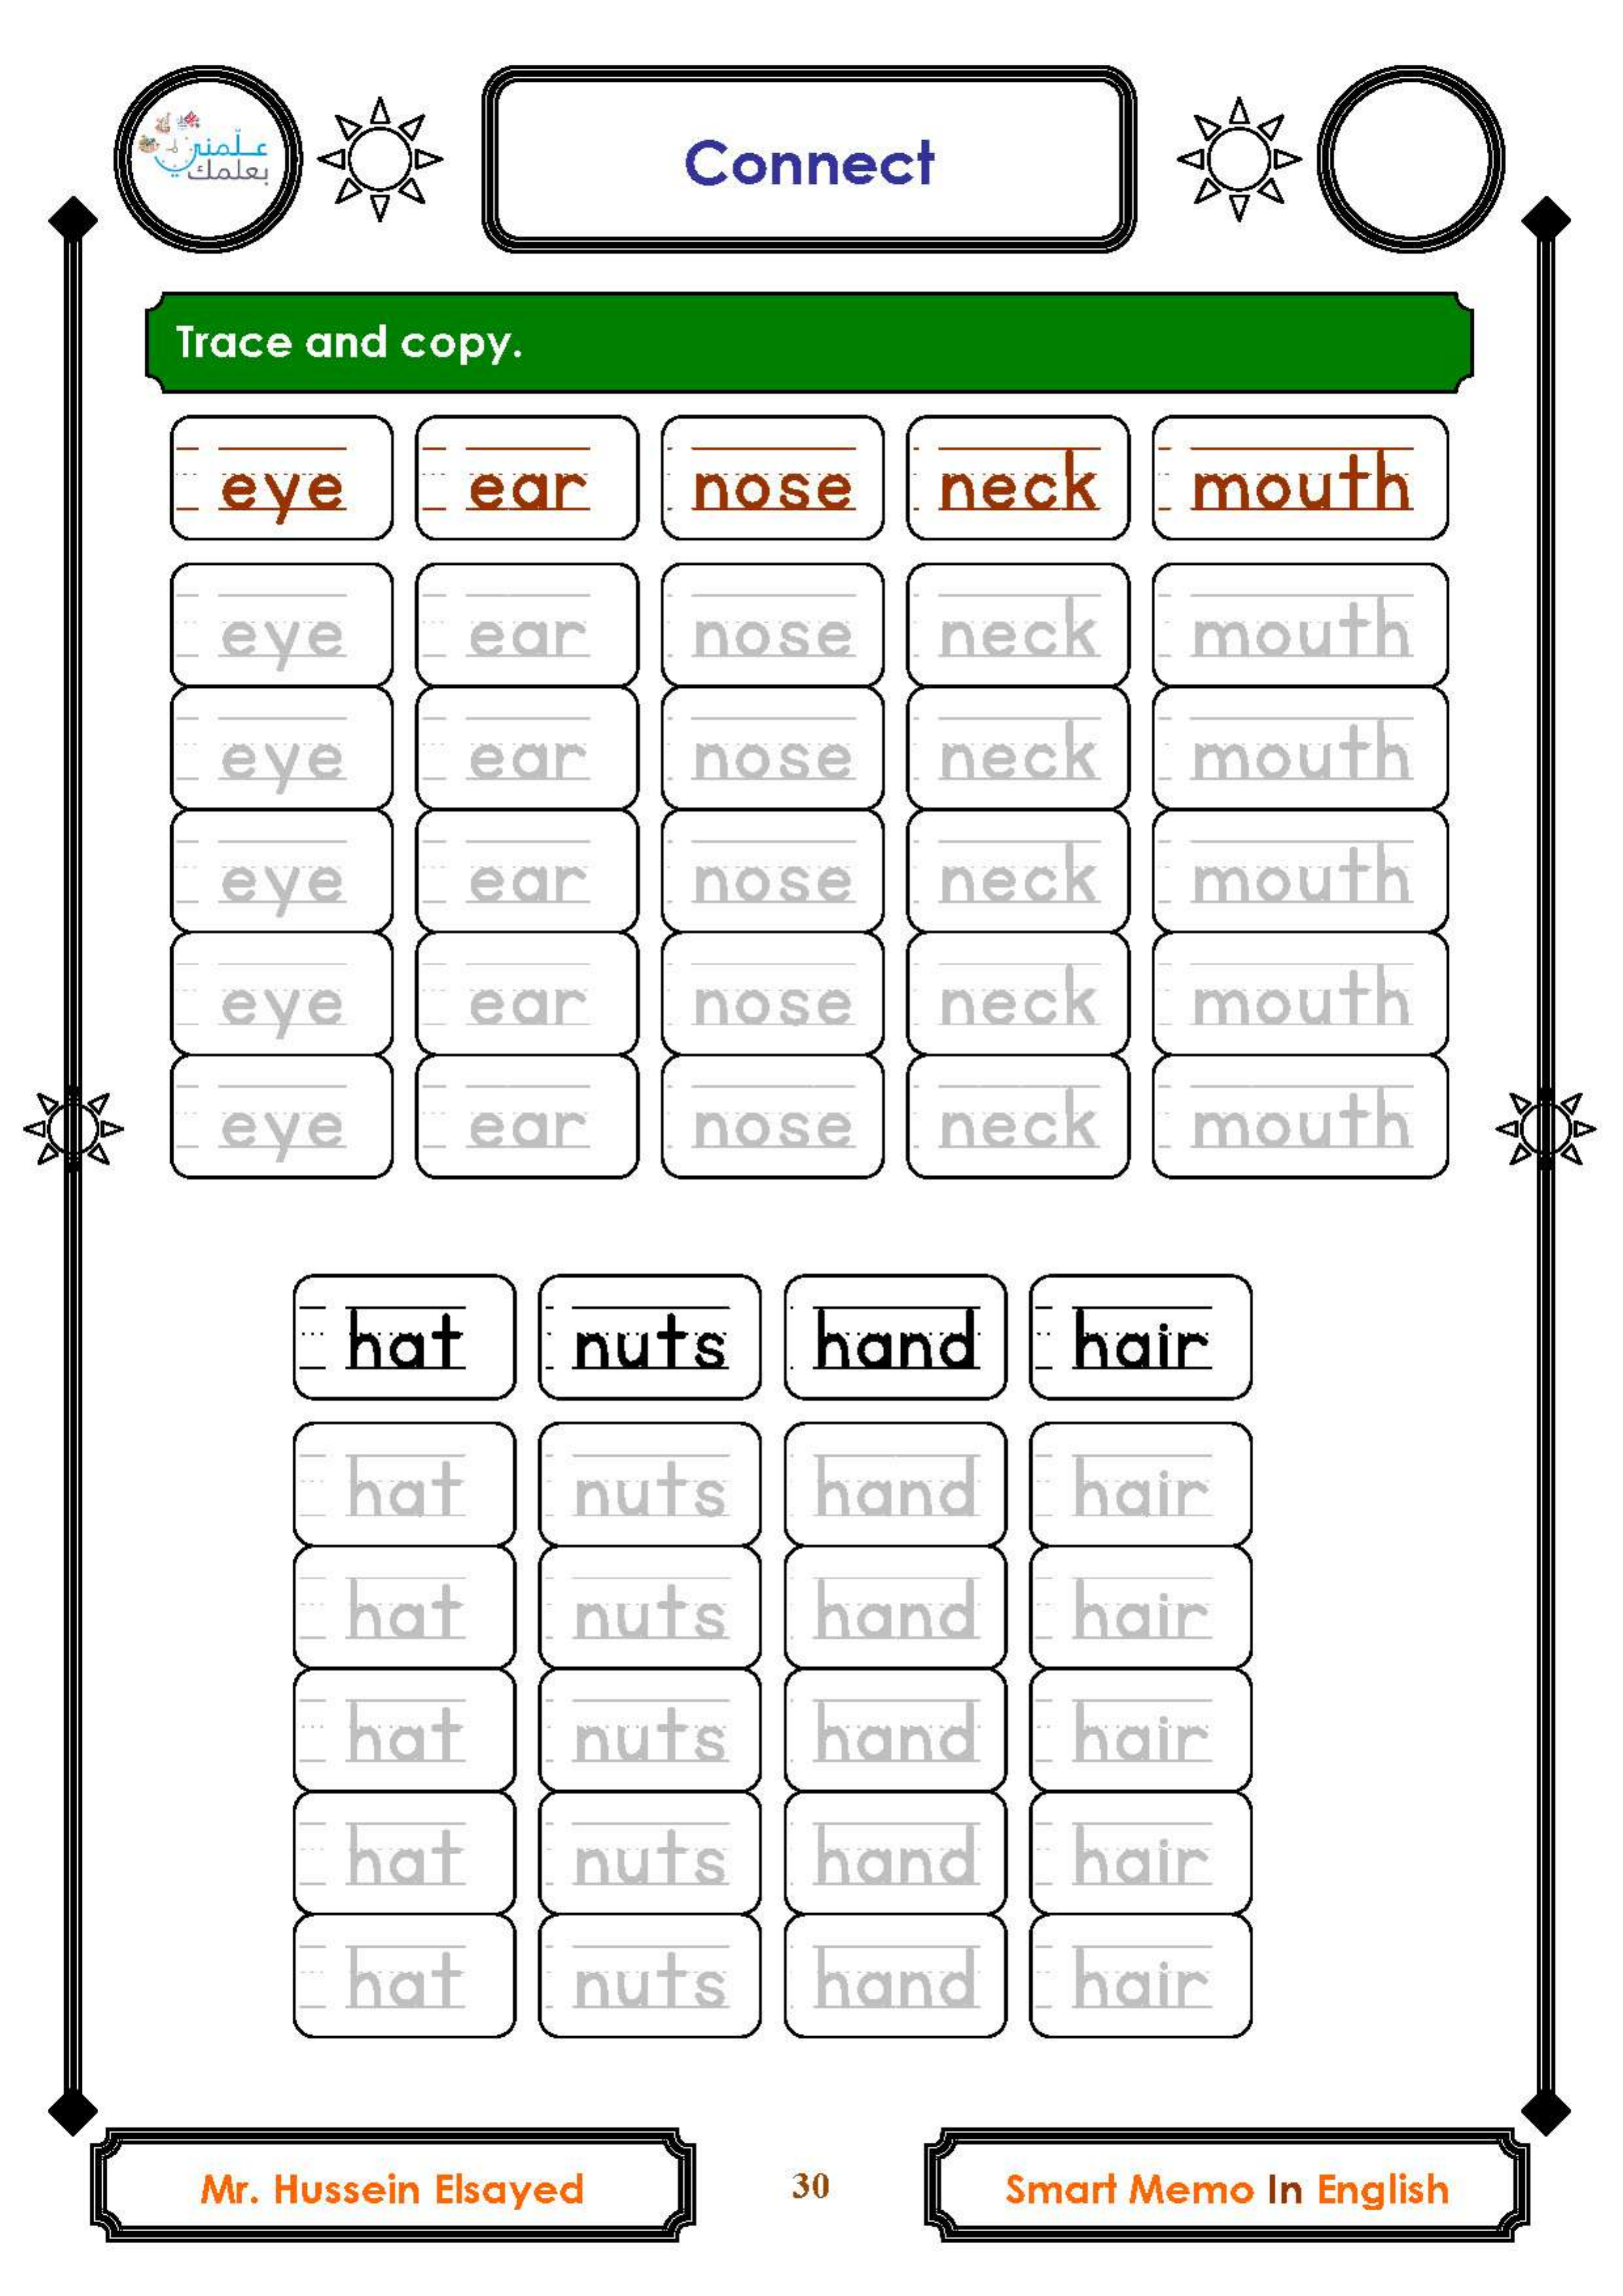 علّمني
بعلمك
Connect
Trace and copy.
eye ear nose neck mouth
eye ear nose neck mouth
eye ear nose neck mouth
eye ear nose neck mouth
eye ear nose neck mouth
eye ear nose neck mouth
hat nuts hand hair
hat nuts hand hair
hat nuts hand hair
hat nuts hand hair
hat nuts hand hair
hat nuts hand hair
Mr. Hussein Elsayed 30 Smart Memo In English